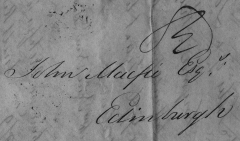 John Macfie Esqr.
Edinburgh